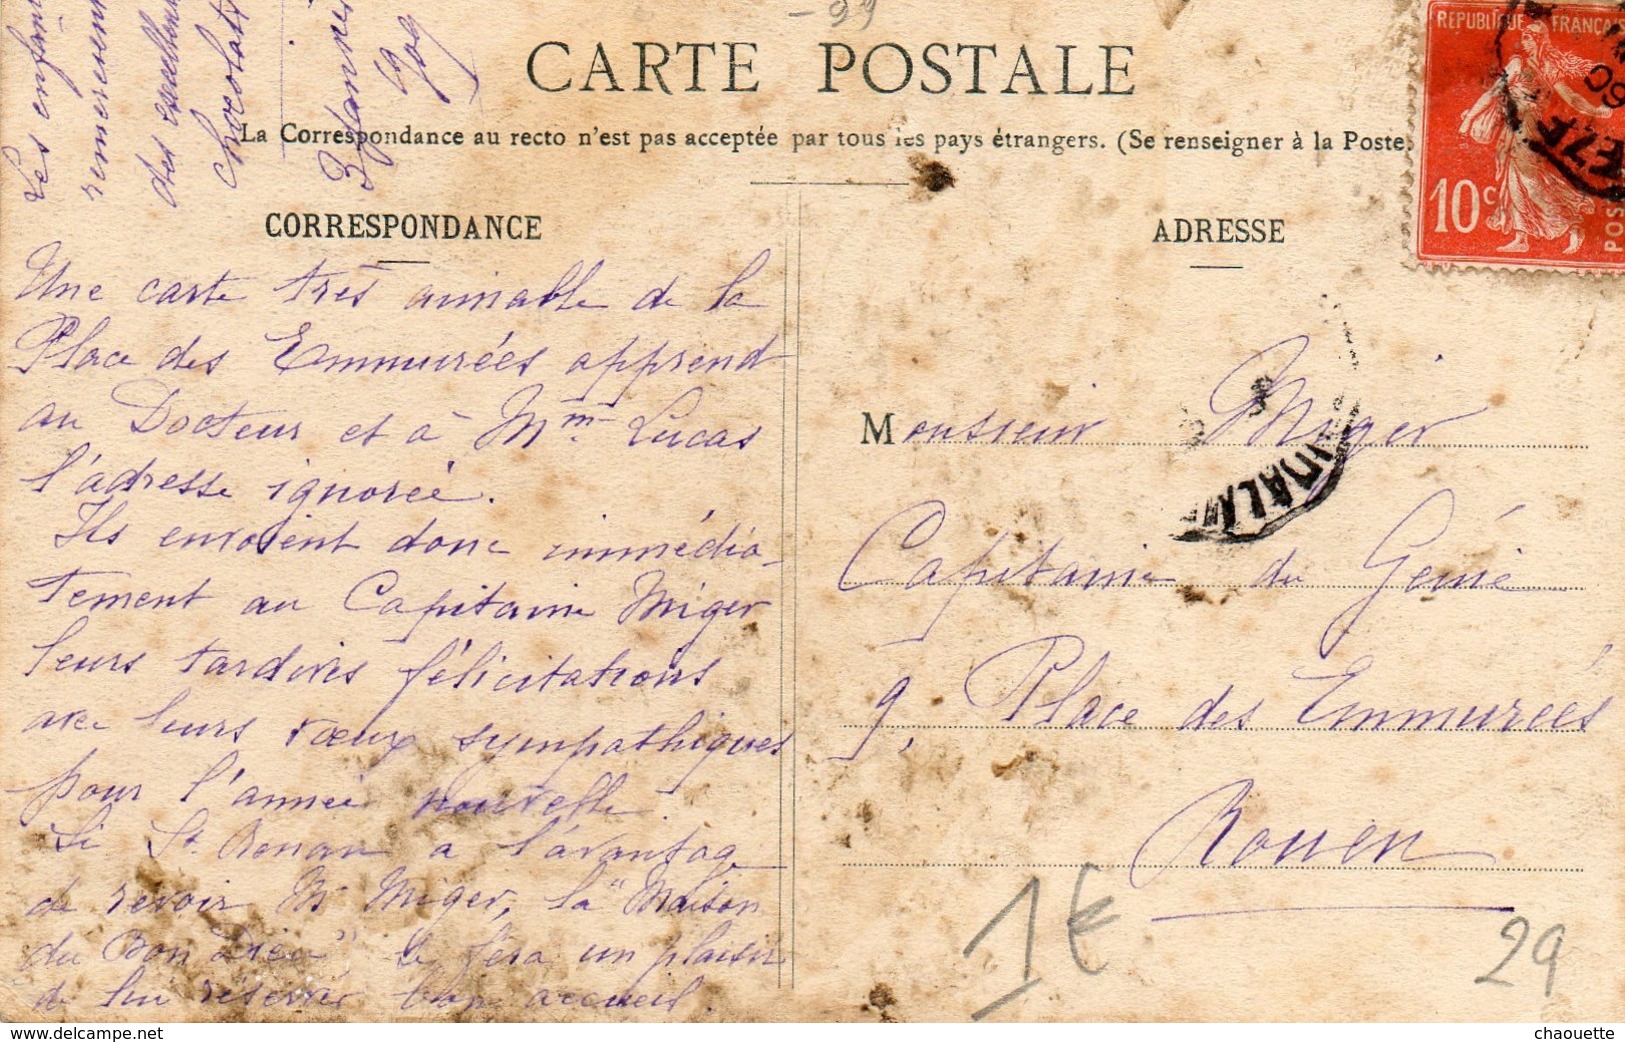 -29
CARTE POSTALE
La Correspondance au recto n'est pas acceptée par tous les pays étrangers. (Se renseigner à la Poste.
CORRESPONDANCE
Les enfants
remercient
des excellents
chocolats
3 Janvier
1909
Une carte très aimable de la
Place des Emmurées apprend
au Docteur et à Mme Lucas
l'adresse ignorée.
Ils envoient donc immédia-
tement au Capitaine Miger
leurs tardives félicitations
avec leurs vœux sympathiques
pour l'année nouvelle.
Si St. Renan a l'avantage
de revoir Mr Miger, la "Maison
du Bon Dieu", se fera un plaisir
de lui réserver bon accueil.
ADRESSE
REPUBLIQUE FRANÇAISE
10c
POS
Monsieur Miger
Capitaine du Génie
9, Place des Emmurées
Rouen
1€
29
www.delcampe.net
chaouette